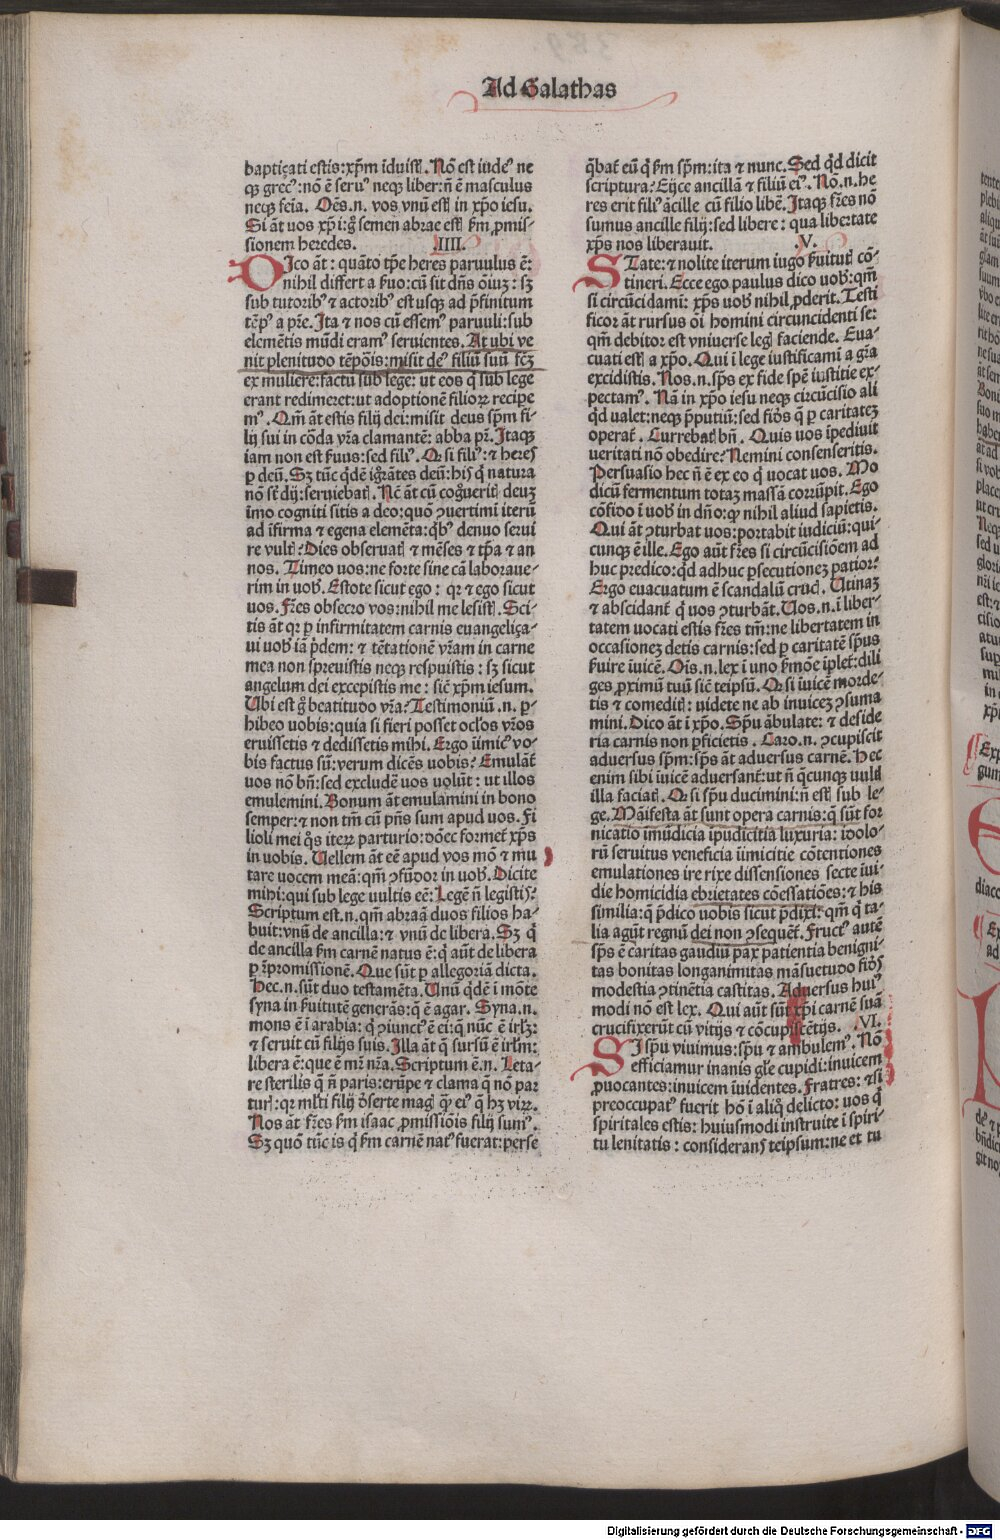 Ad Galathas
baptiçati estis:xp̄m īduist᷒. Nō est iudeꝰ ne
qꝫ grecꝰ:nō ē seruꝰ neqꝫ liber:n̄ ē masculus
neqꝫ feīa. Oēs.n. vos vnū est᷒ in xp̄o iesu.
Si āt uos xp̄i:gͦ semen abrae est᷒ ẜm ꝓmis-
sionem heredes. .IIII.
DIco āt: quāto tp̄e heres paruulus ē:
nihil differt a ẜuo:cū sit dn̄s oīuꝫ: sꝫ
sub tutoribꝰ ⁊ actoribꝰ est usqꝫ ad p̄finitum
tēpꝰ a pr̄e. Ita ⁊ nos cū essemꝰ paruuli:sub
elemētis mūdi eramꝰ seruientes. At ubi ve
nit plenitudo tēpōis:misit deꝰ filiū suū fcͣꝫ
ex muliere:factū sub lege: ut eos q̇ sub lege
erant redimeret:ut adoptionē filioꝝ recipe
mꝰ. Qm̄ āt estis filij dei:misit deus sp̄m fi-
lij sui in cōda vr̄a clamantē: abba pr̄. Itaqꝫ
iam non est ẜuus:sed filiꝰ. Qꝛ si filiꝰ:⁊ heres
ꝑ deū. Sꝫ tūc qͥdē igr̄ātes deū:his q̇ natura
nō st̄ dij:seruiebat᷒. Nc̄ āt cū cogͦuerit᷒ deuꝫ
īmo cogniti sitis a deo:quō ↄuertimī iterū
ad īfirma ⁊ egena elemēta:qͥbꝰ denuo serui
re vult᷒? Dies obseruat᷒ ⁊ mēses ⁊ tp̄a ⁊ an
nos. Timeo uos:ne forte sine cā laboraue-
rim in uob᷒. Estote sicut ego: qꝛ ⁊ ego sicut
uos. Fr̄es obsecro vos:nihil me lesist᷒. Sci-
tis āt qꝛ ꝑ infirmitatem carnis euangeliça-
ui uob᷒ iā p̄dem: ⁊ tētationē vr̄am in carne
mea non spreuistis neqꝫ respuistis: sꝫ sicut
angelum dei excepistis me: sic̄ xp̄m iesum.
Ubi est gͦ beatitudo vr̄a? Testimoniū.n. ꝑ-
hibeo uobis:quia si fieri posset ocl'os vr̄os
eruissetis ⁊ dedissetis mihi. Ergo īimicꝰ vo-
bis factus sū:verum dicēs uobis? Emulāt᷒
uos nō bn̄:sed excludē uos uolūt: ut illos
emulemini. Bonum āt emulamini in bono
semper:⁊ non tm̄ cū pn̄s sum apud uos. Fi
lioli mei qͦs iteꝝ parturio:donec formet᷒ xp̄s
in uobis. Uellem āt eē apud vos mō ⁊ mu
tare uocem meā:qm̄ ↄfūdor in uob᷒. Dicite
mihi:qui sub lege uultis eē: Legē n̄ legistis?
Scriptum est.n. qm̄ abraā duos filios ha-
buit:vnū de ancilla:⁊ vnū de libera. Sꝫ q̇
de ancilla ẜm carnē natus ē:q̇ aūt de libera
ꝑ r̄promissionē. Que sūt ꝑ allegoriā dicta.
Hec.n. sūt duo testamēta. Unū qͥdē ī mōte
syna in ẜuitutē generās:q̄ ē agar. Syna.n.
mons ē ī arabia: q̇ ↄiunctꝰ ē ei:q̄ nūc ē irl'ꝫ:
⁊ seruit cū filijs suis. Illa āt q̄ sursū ē irl'm:
libera ē:que ē mr̄ nr̄a. Scriptum ē.n. Leta-
re sterilis q̄ n̄ paris:erūpe ⁊ clama q̄ nō par
turis:qꝛ ml'ti filij dͤserte mag᷒ qꝫ eiꝰ q̄ hꝫ viꝝ.
Nos āt fr̄es ẜm isaac ꝓmissiōis filij sumꝰ.
Sꝫ quō tūc is q̇ ẜm carnē natꝰ fuerat:perse
q̄bat᷒ eū q̇ ẜm sp̄m:ita ⁊ nunc. Sed qͥd dicit
scriptura? Eijce ancillā ⁊ filiū eiꝰ. Nō.n. he
res erit filiꝰ ācille cū filio libē. Itaqꝫ fr̄es nō
sumus ancille filij:sed libere: qua libertate
xp̄s nos liberauit. .V.
STate:⁊ nolite iterum iugo ẜuitut᷒ cō-
tineri. Ecce ego paulus dico uob᷒:qm̄
si circūcidamī: xp̄s uob᷒ nihil ꝓderit. Testi
ficor āt rursus oī homini circuncidenti se:
qm̄ debitor est vniuerse leg᷒ faciende. Eua-
cuati est᷒ a xp̄o. Qui ī lege iustificamī a gr̄a
excidistis. Nos.n. sp̄s ex fide spē iustitie ex-
pectamꝰ. Nā in xp̄o iesu neqꝫ circūcisio ali
qͥd ualet:neqꝫ p̄putiū:sed fidͤs q̄ ꝑ caritateꝫ
operat᷒. Currebat᷒ bn̄. Quis uos īpediuit
ueritati nō obedire? Nemini consenseritis.
Persuasio hec n̄ ē ex eo q̇ uocat uos. Mo
dicū fermentum totaꝫ massā corrūpit. Ego
cōfido ī uob᷒ in dn̄o:ꝙ nihil aliud sapietis.
Qui āt ↄturbat uos:portabit iudiciū:qui-
cunqꝫ ē ille. Ego aūt fr̄es si circūcisiōem ad
huc predico:qͥd adhuc ꝑsecutioneꝫ patior?
Ergo euacuatum ē scandalū cruc᷒. Utinaꝫ
⁊ abscidant᷒ q̇ uos ↄturbāt. Uos.n. ī liber-
tatem uocati estis fr̄es tm̄:ne libertatem in
occasioneꝫ detis carnis:sed ꝑ caritatē sp̄us
ẜuire īuicē. Oīs.n. lex ī uno ẜmōe īplet᷒:dili
ges ꝓximū tuū sic̄ teipsū. Qꝛ si īuicē morde-
tis ⁊ comedit᷒: uidete ne ab inuiceꝫ ↄsuma
mini. Dico āt ī xp̄o. Sp̄u ābulate: ⁊ deside
ria carnis non ꝑficietis. Caro.n. ↄcupiscit
aduersus sp̄m:sp̄s āt aduersus carnē. Hec
enim sibi īuicē aduersant᷒:ut n̄ q̄cunqꝫ uult᷒
illa faciat᷒. Qꝛ si sp̄u ducimini:n̄ est᷒ sub le-
ge. Māifesta āt sunt opera carnis:q̄ sūt for
nicatio īmūdicia īpudicitia luxuria: idolo-
rū seruitus veneficia īimicitie cōtentiones
emulationes ire rixe dissensiones secte īui-
die homicidia ebrietates cōessatiōes:⁊ his
similia:q̄ p̄dico uobis sicut p̄dixi: qm̄ q̇ ta-
lia agūt regnū dei non ↄsequēt᷒. Fructꝰ autē
sp̄s ē caritas gaudiū pax patientia benigni-
tas bonitas longanimitas māsuetudo fidͤs
modestia ↄtinētia castitas. Aduersus huiꝰ
modi nō est lex. Qui aūt sūt xp̄i carnē suā
crucifixerūt cū vitijs ⁊ cōcupiscētijs. .VI.
SI sp̄u viuimus:sp̄u ⁊ ambulemꝰ. Nō
efficiamur inanis gl'e cupidi:inuicem
ꝓuocantes:inuicem īuidentes. Fratres: ⁊si
preoccupatꝰ fuerit hō ī aliqͦ delicto: uos q̇
spiritales estis: huiusmodi instruite ī spiri-
tu lenitatis: considerans teipsum:ne et tu
Digitalisierung gefördert durch die Deutsche Forschungsgemeinschaft - DFG